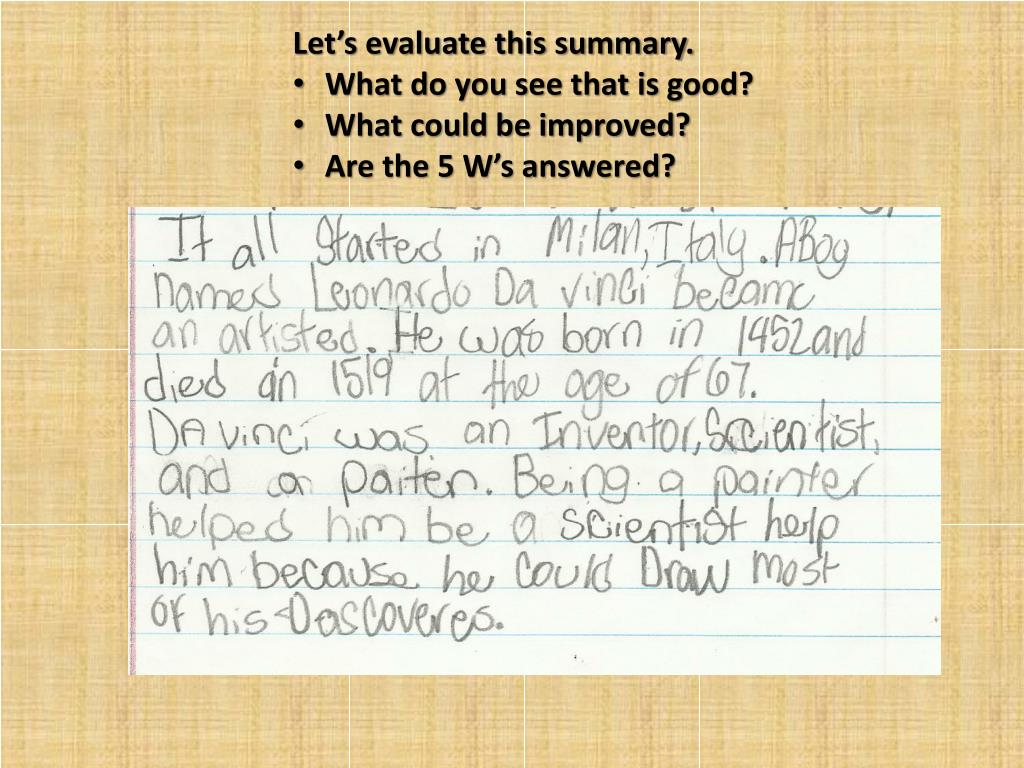 Let's evaluate this summary.
• What do you see that is good?
• What could be improved?
• Are the 5 W's answered?
It all started in Milan, Italy. A Boy
named Leonardo Da vinci became
an artisted. He was born in 1452 and
died in 1519 at the age of 67.
DA vinci was an Inventor, Scientist,
and a paiten. Being a painter
helped him be a scientist help
him because he could Draw most
of his Dascoveres.